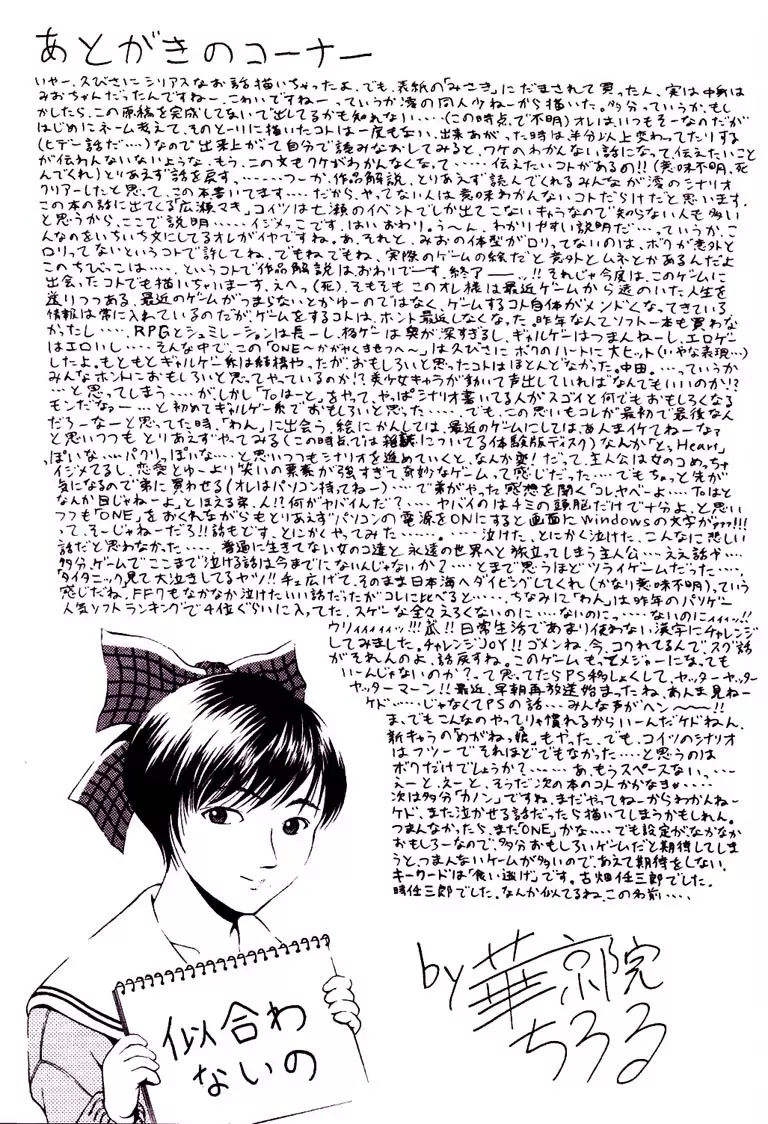 あとがきのコーナー
いやー、久びさに シリアスな お話 描いちゃったよ。でも、表紙の「みさき」に だまされて 買った人、実は 中身は
みおちゃんだったんですねー。こわいですねー っていうか 澪の 同人 少ねーから 描いた。多分っていうか、もし
かしたら、この 原稿を 完成してないで 出してるかも知れない‥‥(この時点で 不明) オレは、いつもそーなのだが
はじめに ネーム 考えて、そのとーりに 描いたコトは 一度もない、出来あがった時は 半分以上 変わってたりする
(ヒデー話だ‥‥)なので 出来上がって 自分で 読みなおしてみると、ワケのわかんない、話になって、伝えたいこと
が伝わんないないような、もう、この文もワケがわかんなくなって‥‥‥伝えたいコトがあるの!!(意味不明、死
んでくれ)とりあえず 話を戻す、‥‥‥‥つーか、作品解説、とりあえず 読んでくれる みんなが 澪のシナリオ
クリアーしたと思って、この本書いてます‥‥だから、やってない人は 意味わかんない コトだらけだと思います、
この本の話に出てくる「広瀬マキ」コイツは 七瀬のイベントでしか出てこないキャラなので 知らない人も 多い
と思うから、ここで説明‥‥‥イジメっこです、はい、おわり。う〜ん、わかりやすい説明だ‥‥っていうか、こ
んなのをいちいち文にしてるオレがイヤですね。あ、それと、みおの体型がロリってないのは、ボクが意外と
ロリってないというコトで許してね、でもねでもね、実際のゲームの絵だと 意外とムネとかあるんだよ
このちびっこは‥‥、というコトで作品解説は、おわりでーす、終了ァ——ッ!! それじゃ今度は、このゲームに
出会ったコトでも描いちゃいまーす、えへっ(死)、そもそも このオレ様は 最近ゲームから 遠のいた人生を
送りつつある、最近のゲームがつまらないとかゆーのではなく、ゲームするコト自体が メンドくなってきている
情報は 常に入れているのだが ゲームをするコトは、ホント最近しなくなった、昨年なんて ソフト一本も買わな
かったし‥‥、RPGとシュミレーションは 長ーし、格ゲーは 奥が深すぎるし、ギャルゲーは つまんねーし、エロゲー
はエロいし‥‥そんな中で、この「ONE〜かがやくきせつへ〜」は 久びさに ボクのハートに大ヒット(いやな表現…)
したよ。もともとギャルゲー系は結構やったが、おもしろいと思ったコトは ほとんどなかった。中田。‥‥っていうか
みんな ホントに おもしろいと思って やっているのか!? 美少女キャラが 動いて 声出していれば なんでもいいのか!?
‥‥と思ってしまう‥‥がしかし「Toはーと」をやって、やっぱシナリオ書いてる人が スゴイと 何でもおもしろくなる
モンだなぁー‥‥と 初めてギャルゲー系で おもしろいと思った‥‥‥、でも、この思いも コレが 最初で最後なん
だろーなーと 思ってた時、「わん」に出会う、絵にかんしては、最近のゲームにしては、あんまイケてねーなァ
と思いつつも とりあえずやってみる(この時点では 雑誌についてる体験版ディスク)なんか「とぅHeart」
っぽいな‥‥パクりっぽいな‥‥と思いつつも シナリオを進めていくと、なんか変! だって、主人公は女のコめっちゃ
イジメてるし、恋愛とゆーより 笑いの要素が 強すぎて 奇妙なゲームって 感じだった‥‥でもちょっと先が
気になるので弟に買わせる(オレはパソコン持ってねー)‥‥で弟がやった 感想を聞く「コレヤベーよ‥‥Toはと
なんか目じゃねーよ」とほえる弟、ん!? 何がヤバイんだ?‥‥、ヤバイのは テメの頭脳だけで 十分よ、と思い
つつも「ONE」を おくれながらも とりあえず パソコンの 電源を ONにすると 画面に Windowsの文字がァァァ!!!
って、そーじゃねーだろ!! 話もどす、とにかくやってみた‥‥‥‥。‥‥‥泣けた、とにかく泣けた、こんなに悲しい
話だと思わなかった‥‥‥、普通に生きてない 女のコ達と 永遠の世界へと 旅立ってしまう主人公‥‥ええ話や‥‥
多分、ゲームで ここまで泣ける話は 今までに ないんじゃないか?‥‥とまで思うほど ツライゲームだった‥‥、
「タイタニック」見て大泣きしてるヤツ!! チェ広げて、そのまま日本海へダイビングしてくれ(かなり意味不明)っていう
感じだね、FF7もなかなか泣けたいい話だったが コレに比べると‥‥、ちなみに「わん」は 昨年の パソゲー
人気ソフトランキングで 4位ぐらいに 入ってた、スゲーな 全々えろくないのに‥‥ないのにっ‥‥ないのにィィィッ!!
ウリィィィィィッ!!! 瓜!! 日常生活であまり使わない 漢字にチャレンジ
してみました。チャレンジJOY!! ゴメンね、今、コワれてるんで スグ話
がそれんのよ、話戻すね。このゲーム もってメジャーになっても
いーんじゃないのか?って思ってたらPS移しょくして、ヤッターヤッター
ヤッターマーン!! 最近、早朝再放送始まったね、あんま見ねー
ケド‥‥じゃなくてPSの話‥‥みんな声がヘン〜〜〜!!
ま、でもこんなの やってりゃ慣れるからいーんだケドねん、
新キャラの「めがねっ娘」もやった、でも、コイツのシナリオ
はフツーで それほどでもなかった‥‥と思うのは
ボクだけでしょうか?‥‥‥あ、もうスペースない、‥‥
えーと、えーと、そうだ次の本のコトかかなきゃ‥‥‥
次は多分「カノン」ですね、まだやってねーからわかんねー
ケド、また泣かせる話だったら描いてしまうかもしれん。
つまんなかったら、また「ONE」かな‥‥でも設定がなかなか
おもしろーなので、多分おもしろいゲームだと期待してしま
うと、つまんないゲームが多いので、あえて期待をしない、
キーワードは「食い逃げ」です。古畑任三郎でした。
時任三郎でした。なんか似てるね、この名前‥‥、
似合わ
ないの
by 華京院
ちろる